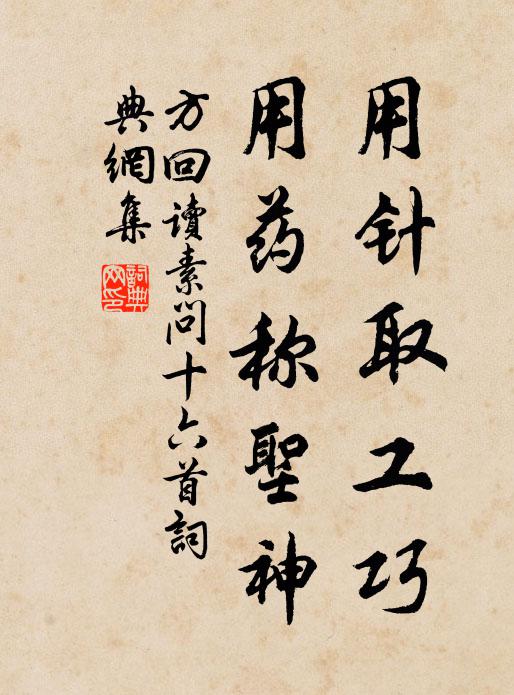 用针取工巧
用药称聖神
方回讀素問十六首詞
典網集
詞典
网印